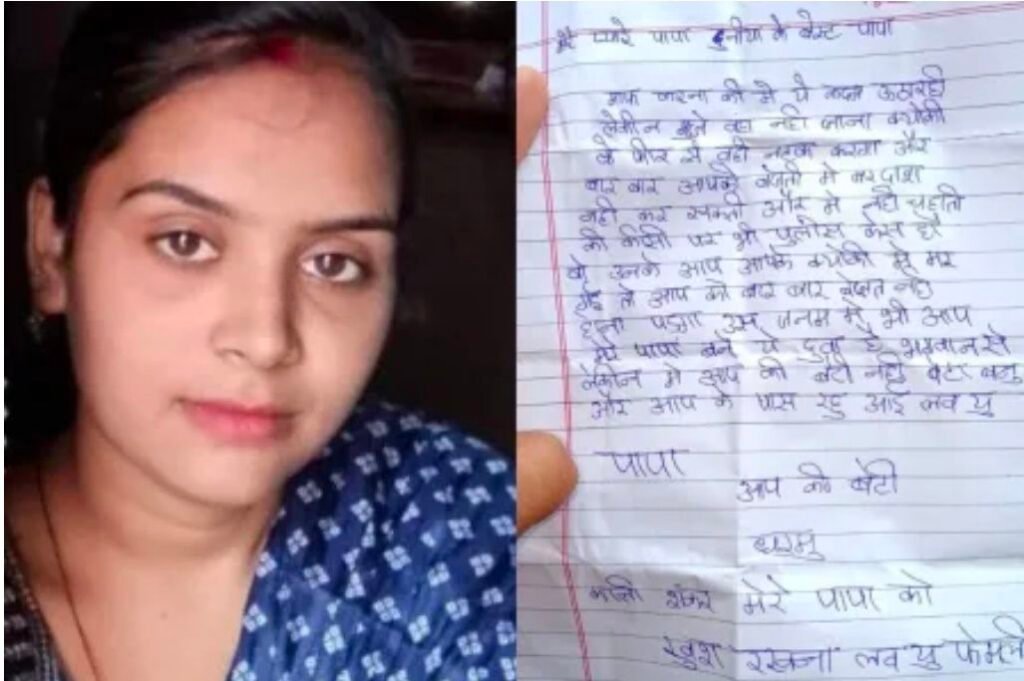 मेरे प्यारे पापा दुनीया के बेस्ट पापा
माफ करना की मे ये कदम उठा रही
लेकीन मुजे वहा नही जाना क्योकी
वे फीर से वही नरक करता और
बार बार आपकी बेजती मे बरदाश
नही कर सकती और मे नही चहाती
की कीसी पर भी पुलीस केस हो
वो उनके आप आपके क्योकी मे मर
गई तो आप को बार बार बेजत नही
होना पडेगा उस जनम मे भी आप
मेरे पापा बने ये दुवा है भगवान से
लेकीन मे आप की बेटी नही बेटा बनु
और आप के पास रहु आई लव यु
पापा
आप की बेटी
धरमु
शंकर मेरे पापा को
खुश रखना लव यु फेमली